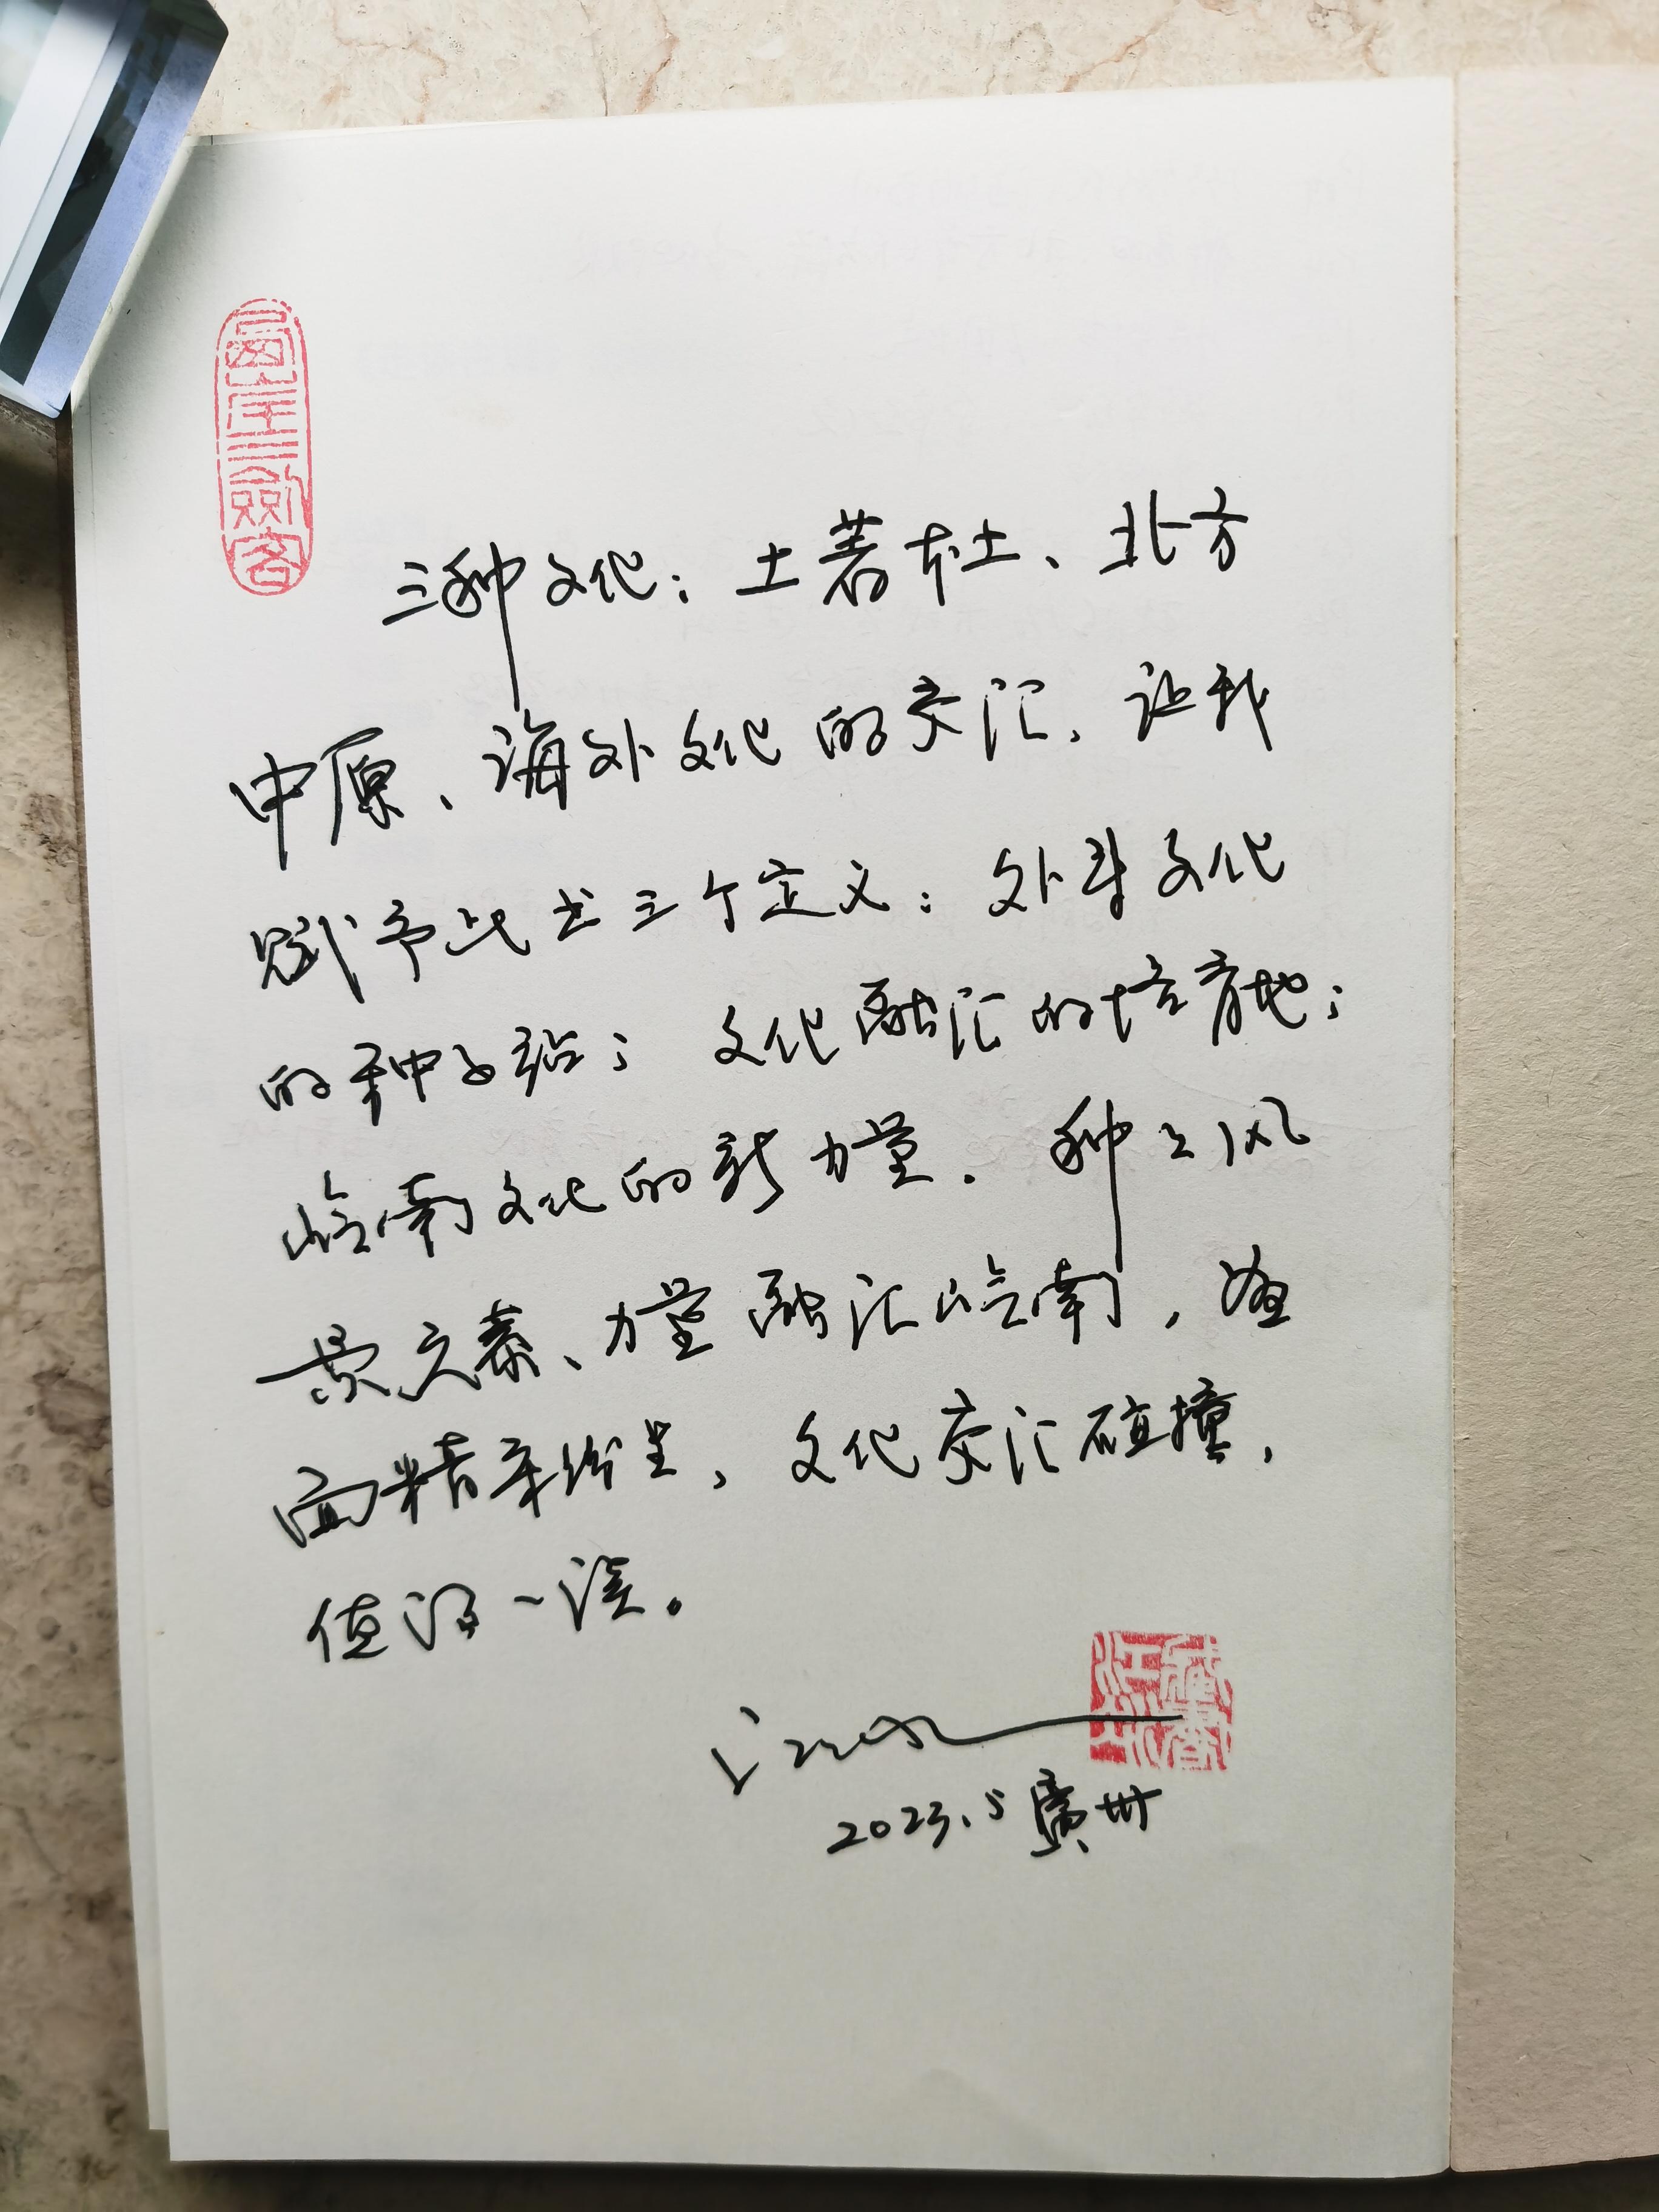 三种文化：土著本土、北方
中原、海外文化的交汇，让我
赋予此书三个定义：外来文化
的种子站；文化融汇的培育地；
岭南文化的新力量。种之风
景之素、力量融汇岭南，画
面精采纷呈，文化交汇碰撞，
值得一读。
2023.5 廣州